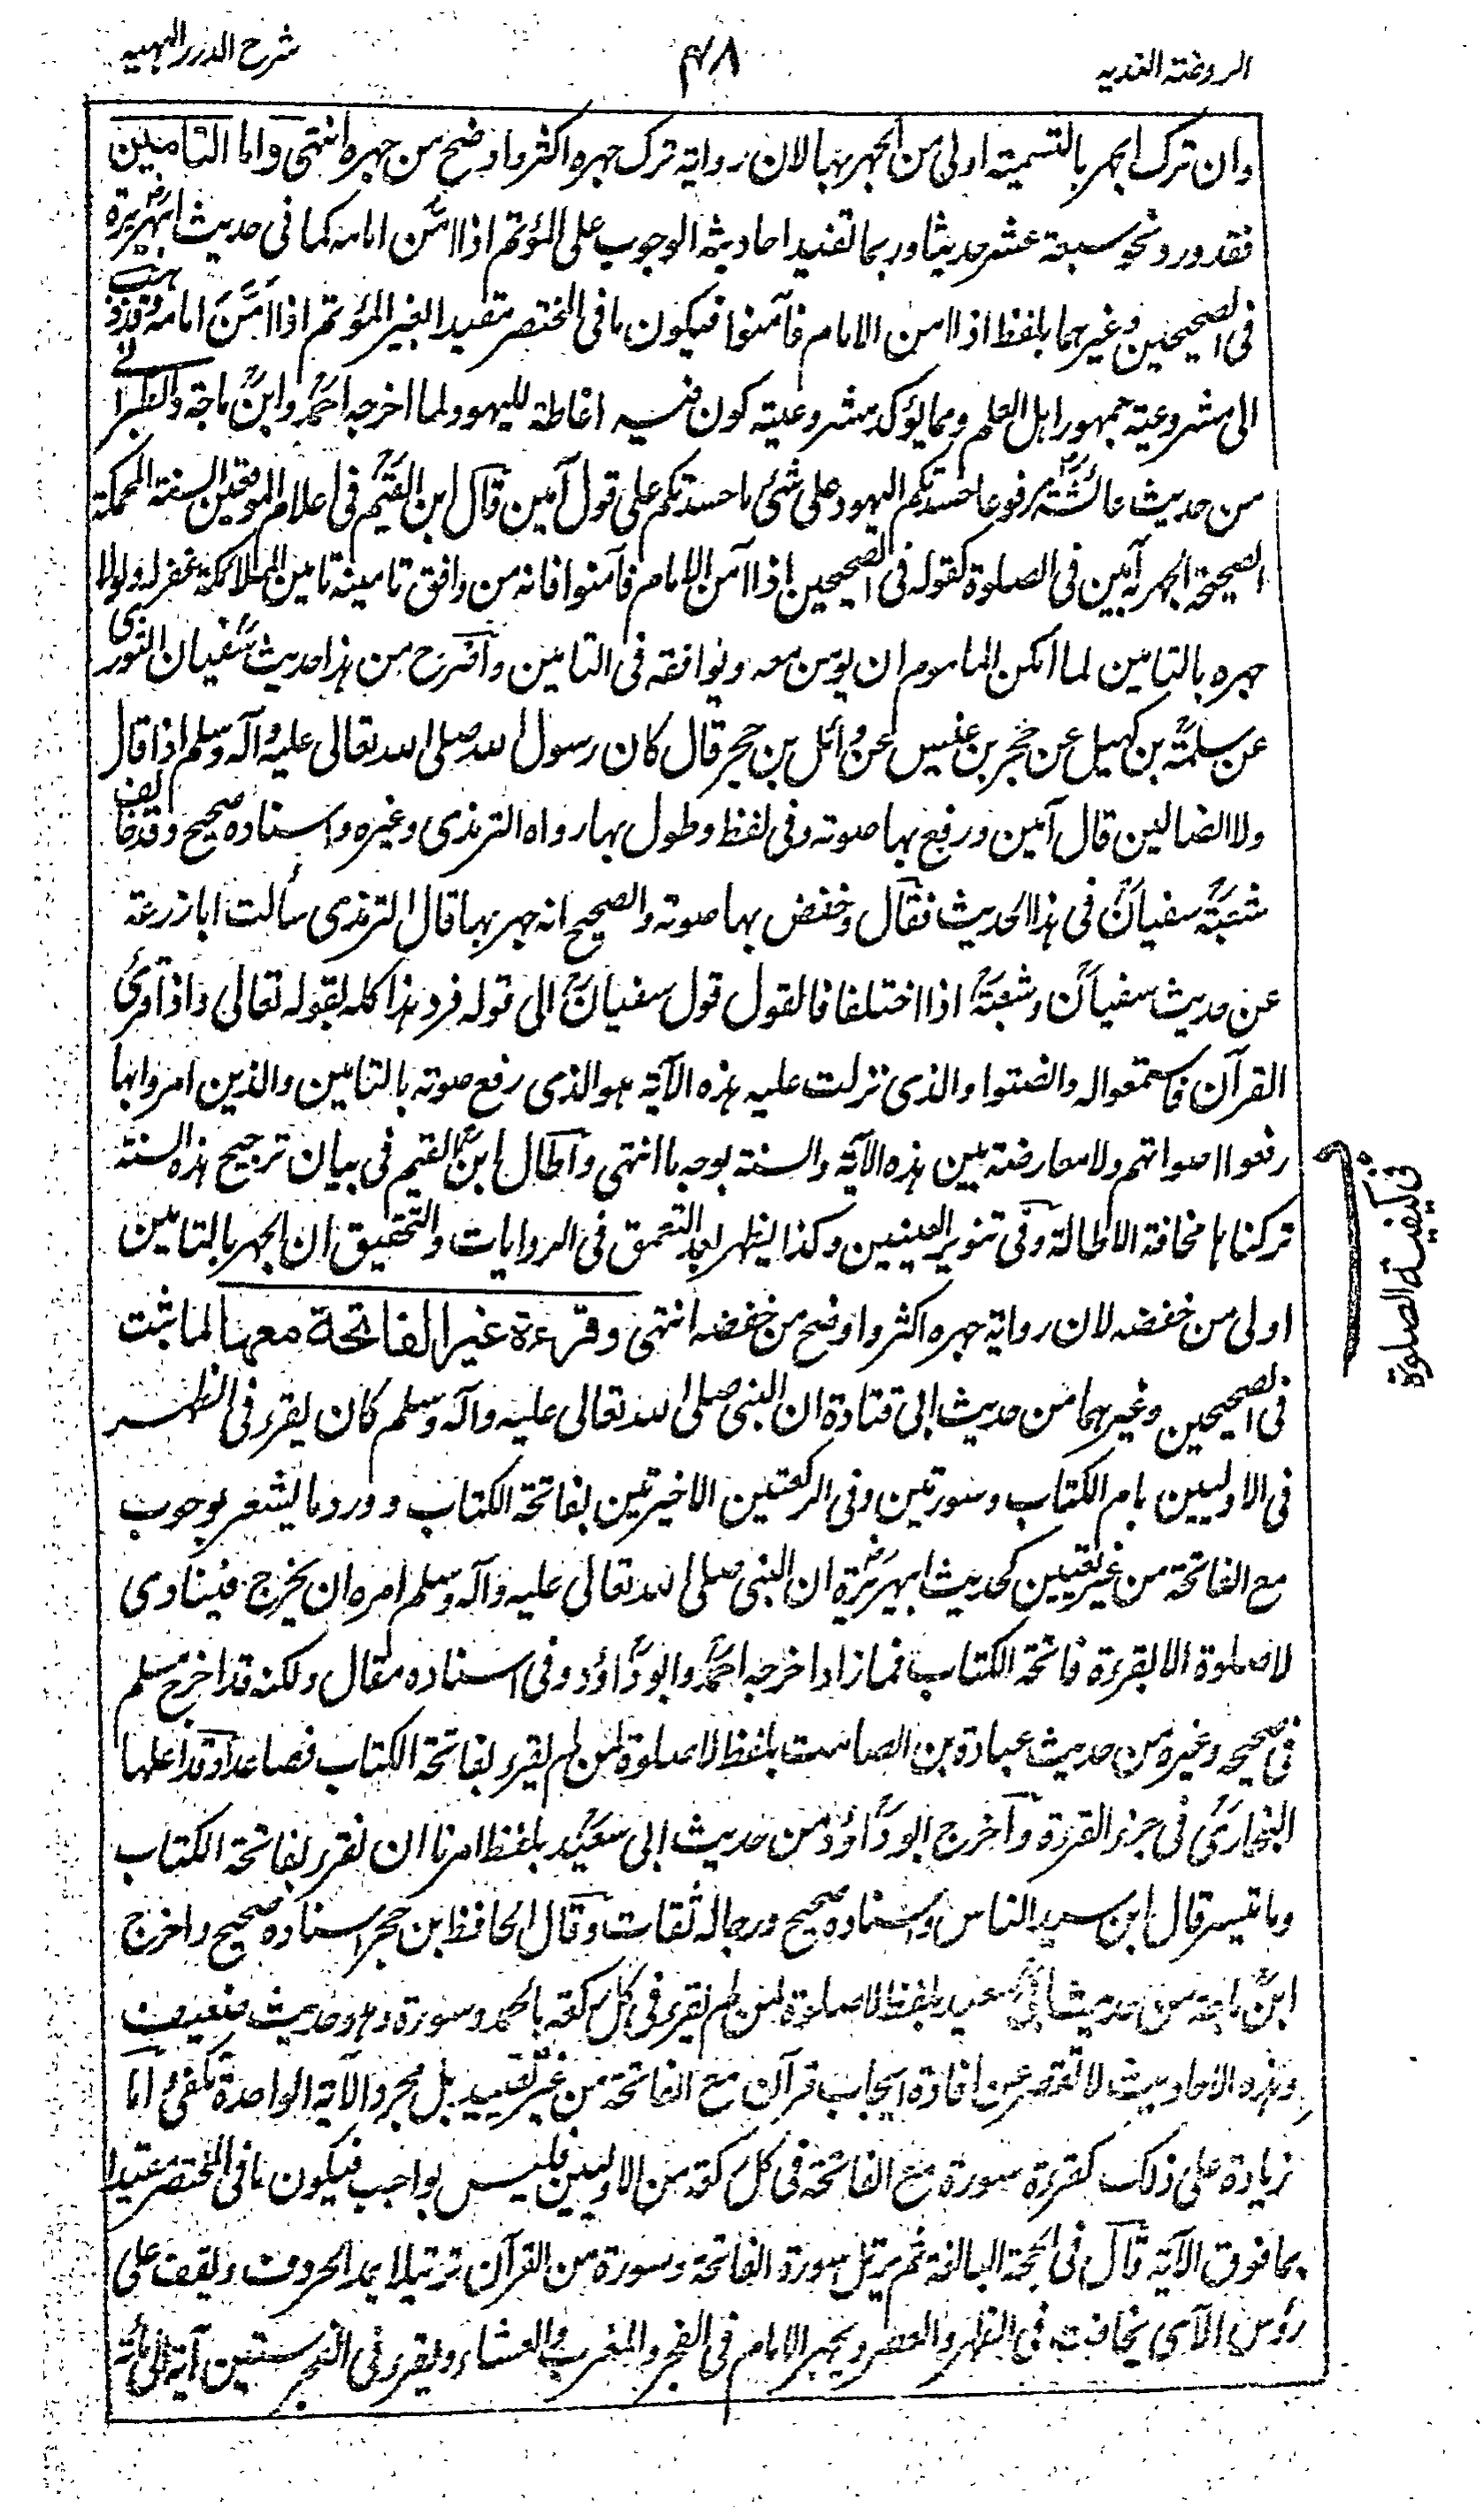 الروضة الندیه
٤٨
شرح الدرر البهیه
وان ترک الجهر بالتسمیة اولی من الجهر بها لان روایة ترک جهره اکثر واوضح من جهره انتهی واما التامین
فقد ورد نحو سبعة عشر حدیثا وربما تفید احادیثه الوجوب علی المؤتم اذا امّن امامه کما فی حدیث ابیهریرة
فی الصحیحین وغیرهما بلفظ اذا امن الامام فآمنوا فیکون ما فی المختصر مقیدا بغیر المؤتم اذا امَّنَ امامه وقد ذهب
الی مشروعیة جمهور اهل العلم ومما یؤکد مشروعیته کون فیه اغاظة للیهود ولما اخرجه احمد وابن ماجة والطبرانی
من حدیث عائشة مرفوعا حسدتکم الیهود علی شئ ما حسدتکم علی قول آمین قال ابن القیم فی اعلام الموقعین السنة المحکمة
الصحیحة الجهر بآمین فی الصلوة کقوله فی الصحیحین اذا آمن الامام فآمنوا فانه من وافق تامینه تامین الملائکة غفر له ولولا
جهره بالتامین لما امکن الماموم ان یومن معه ویوافقه فی التامین واصرح من هذا حدیث سفیان الثوری
عن سلمة بن کهیل عن حجر بن عنبس عن وائل بن حجر قال کان رسول الله صلی الله تعالی علیه وآله وسلم اذا قال
ولا الضالین قال آمین ورفع بها صوته وفی لفظ وطول بها رواه الترمذی وغیره واسناده صحیح وقد خالف
شعبة سفیان فی هذا الحدیث فقال وخفض بها صوته والصحیح انه جهر بها قال الترمذی سألت ابا زرعة
عن حدیث سفیان وشعبة اذا اختلفا فالقول قول سفیان الی قوله فرد هذا کله بقوله تعالی واذا قرئ
القرآن فاستمعوا له وانصتوا والذی نزلت علیه هذه الآیة هو الذی رفع صوته بالتامین والذین امروا بها
رفعوا اصواتهم ولا معارضة بین هذه الآیة والسنة بوجه ما انتهی واطال ابن القیم فی بیان ترجیح هذه السنة
ترکناها مخافة الاطالة وفی تنویر العینین وکذا یظهر بعد التعمق فی الروایات والتحقیق ان الجهر بالتامین
اولی من خفضه لان روایة جهره اکثر واوضح من خفضه انتهی وقرءة غیر الفاتحة معها لما ثبت
فی الصحیحین وغیرهما من حدیث ابی قتادة ان النبی صلی الله تعالی علیه وآله وسلم کان یقرء فی الظهر
فی الاولیین بام الکتاب وسورتین وفی الرکعتین الاخیرتین بفاتحة الکتاب وورد ما یشعر بوجوب
مع الفاتحة من غیر تعیین کحدیث ابیهریرة ان النبی صلی الله تعالی علیه وآله وسلم امره ان یخرج فینادی
لا صلوة الا بقرءة فاتحة الکتاب فما زاد اخرجه احمد وابوداؤد وفی اسناده مقال ولکنه قد اخرج مسلم
فی صحیحه وغیره من حدیث عبادة بن الصامت بلفظ لا صلوة لمن لم یقرء بفاتحة الکتاب فصاعدا وقد اعلها
البخاری فی جزء القرءة واخرج ابوداؤد من حدیث ابی سعید بلفظ امرنا ان نقرء بفاتحة الکتاب
وما تیسر قال ابن سید الناس واسناده صحیح ورجاله ثقات وقال الحافظ ابن حجر اسناده صحیح واخرج
ابن ماجة من حدیث ابی سعید بلفظ لا صلوة لمن لم یقرء فی کل رکعة بالحمد وسورة وهو حدیث ضعیف
وهذه الاحادیث لا تقصر عن افادة ایجاب قرآن مع الفاتحة من غیر تقیید بل مجرد الآیة الواحدة تکفی اما
زیادة علی ذلک کقرءة سورة مع الفاتحة فی کل رکعة من الاولیین فلیس بواجب فیکون ما فی المختصر مقیدا
بما فوق الآیة قال فی الحجة البالغة ثم یرتل سورة الفاتحة وسورة من القرآن ترتیلا یمد الحروف ویقف علی
رؤس الآی یخافت فی الظهر والعصر ویجهر الامام فی الفجر والمغرب والعشاء ویقرء فی الفجر ستین آیة الی مائة
فی کیفیة الصلوة